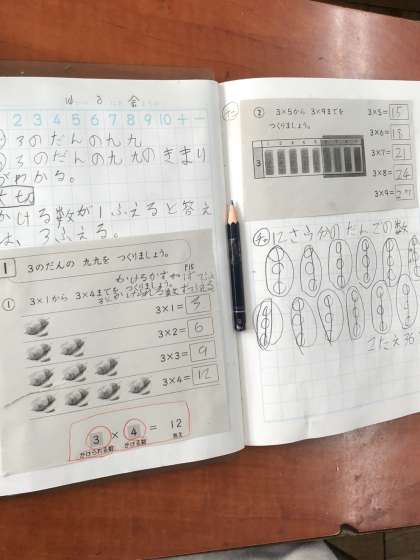 2 3 4 5 6 7 8 9 10 + -
3のだんの九九
3のだんの九九のきまり
がわかる。
かける数が1ふえると答え
は、3ふえる。
1 3のだんの 九九を つくりましょう。
① 3×1から 3×4までを つくりましょう。
3×1= 3
3×2= 6
3×3= 9
3×4= 12
3 × 4 = 12
かけられる数 かける数 答え
② 3×5から 3×9までを
つくりましょう。
3
3×5= 15
3×6= 18
3×7= 21
3×8= 24
3×9= 27
12さら分のだんごの数
こたえ 36